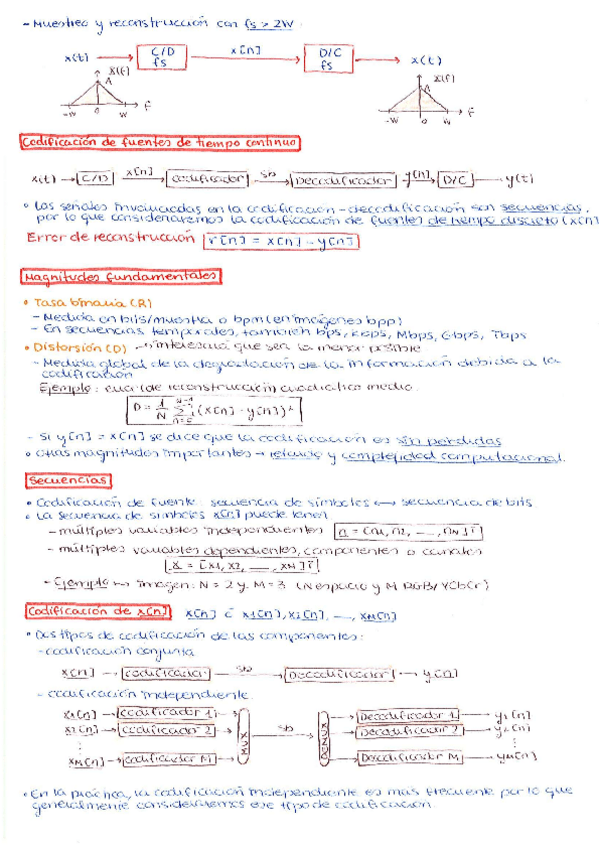 - Muestreo y reconstrucción con fs > 2W
x(t) → C/D fs → x[n] → D/C fs → x(t)
X(f) A -W 0 W f X(f) A -W 0 W f
Codificación de fuentes de tiempo continuo
x(t) → C/D → x[n] → codificador → sb → Decodificador → y[n] → D/C → y(t)
• Las señales involucradas en la codificación-decodificación son secuencias,
por lo que consideraremos la codificación de fuentes de tiempo discreto (x[n])
Error de reconstrucción r[n] = x[n] - y[n]
Magnitudes fundamentales
• Tasa binaria (R)
- Medida en bits/muestra o bpm (en imágenes bpp)
- En secuencias temporales, también bps, kbps, Mbps, Gbps, Tbps
• Distorsión (D) → interesa que sea la menor posible
- Medida global de la degradación de la información debida a la
codificación
Ejemplo: error de reconstrucción cuadrático medio
D = 1/N Σ (x[n] - y[n])²
- Si y[n] = x[n] se dice que la codificación es sin pérdidas
• Otras magnitudes importantes → retardo y complejidad computacional.
Secuencias
• Codificación de fuente: secuencia de símbolos ↔ secuencia de bits
• La secuencia de símbolos x[n] puede tener
- múltiples variables independientes n = [n1, n2, ..., nN]T
- múltiples variables dependientes, componentes o canales
x = [x1, x2, ..., xM]T
- Ejemplo → imagen: N = 2 y M = 3 (N espacio y M RGB/YCbCr)
Codificación de x[n] x[n] = x1[n], x2[n], ..., xM[n]
• Dos tipos de codificación de las componentes:
- codificación conjunta
x[n] → codificador → sb → Decodificador → y[n]
- codificación independiente
x1[n] → codificador 1 → Decodificador 1 → y1[n]
x2[n] → codificador 2 → MUX → sb → DEMUX → Decodificador 2 → y2[n]
xM[n] → codificador M → Decodificador M → yM[n]
• En la práctica, la codificación independiente es más frecuente por lo que
generalmente consideraremos ese tipo de codificación.